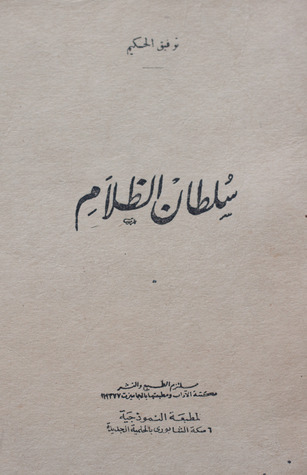 توفيق الحكيم
سُلطانُ الظلَامِ
ملتزم الطبع والنشر
مكتبة الآداب ومطبعتها بالجاميزت ٤٢٣٧٧
المطبعة النموذجية
٦ سكة الشابورى بالحلمية الجديدة